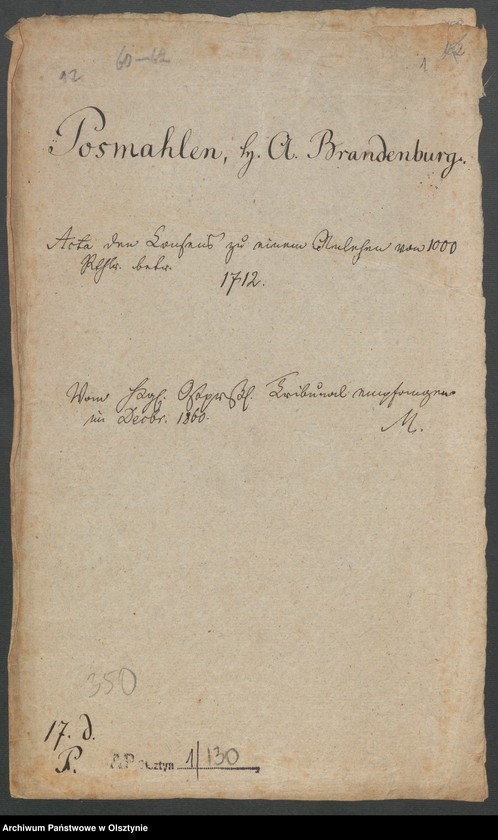 12
60-62
1
Posmahlen, H. A. Brandenburg.
Acta den Consens zu einem Anlehen von 1000
Rthlr. betr.
1712.
Vom Kgl. Ostprß. Tribunal empfangen
im Decbr. 1860.
M.
350
17. d.
P.
AP Olsztyn 1/130
Archiwum Państwowe w Olsztynie